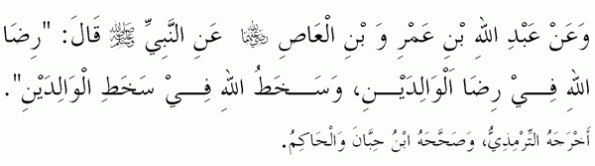 وَعَنْ عَبْدِ اللهِ بْنِ عَمْرِ وَ بْنِ الْعَاصِ ﵄ عَنِ النَّبِيِّ ﷺ قَالَ: "رِضَا
اللهِ فِيْ رِضَا اَلْوَالِدَيْـــنِ، وَسَـــخَطُ اللهِ فِـــيْ سَخَطِ الْوَالِدَيْنِ".
أَخْرَجَهُ التِّرْمِذِيُّ، وَصَحَّحَهُ ابْنُ حِبَّانَ وَالْحَاكِمُ.